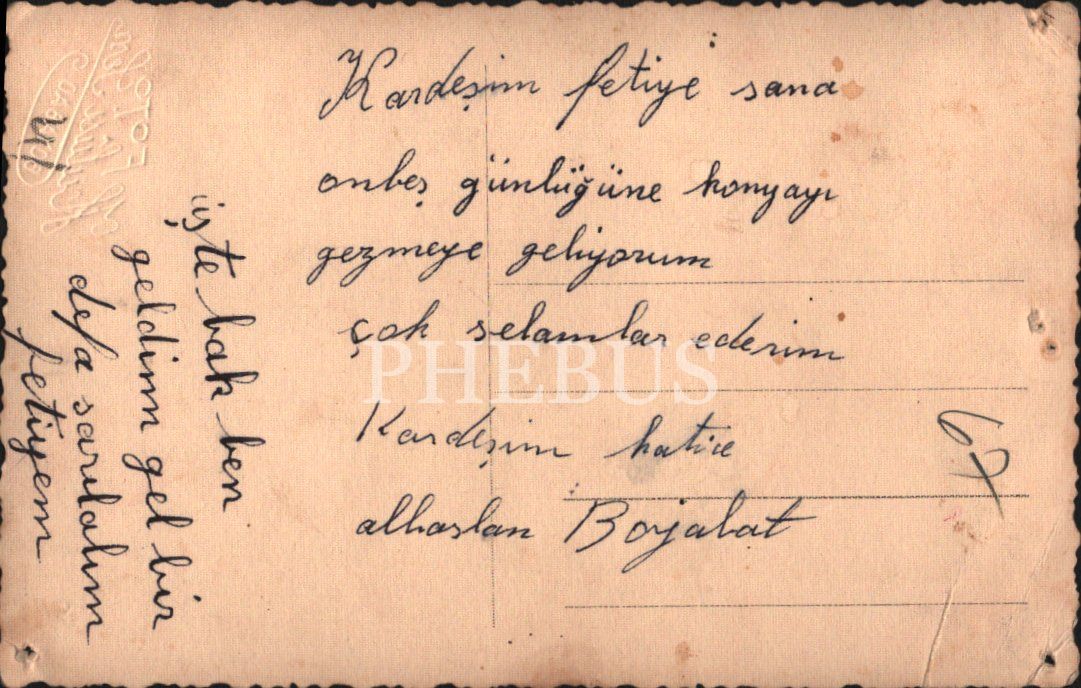 Kardeşim fetiye sana
onbeş günlüğüne konyayı
gezmeye geliyorum
çok selamlar ederim
Kardeşim hatice
alkaslan Boyabat
işte bak ben
geldim gel bir
defa sarılalım
fetiyem
67
PHEBUS
FOTO